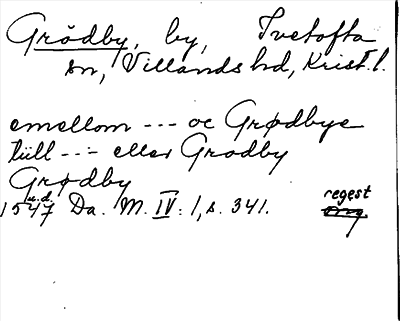 Grödby, by, Ivetofta
sn, Villands hd, Krist. l.
emellom --- oc Grødbye
tüll --- eller Grodby
Grødby
u.d.
1547 Da. M. IV: 1, s. 341. regest
orig.